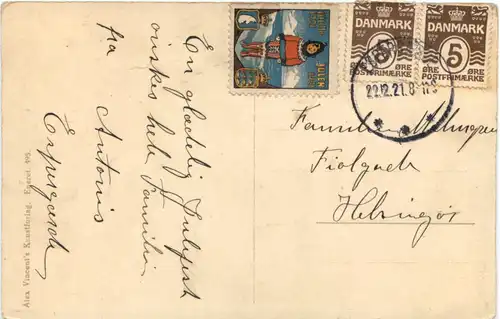 En glædelig Julefest
ønskes hele Familien
fra Antonis
Espergærde
Alex Vincent's Kunstforlag. Eneret.
JULEN
DANMARK
5
ØRE
POSTFRIMÆRKE
DANMARK
5
ØRE
POSTFRIMÆRKE
22.12.21.8
Familien
Fiolgade
Helsingør